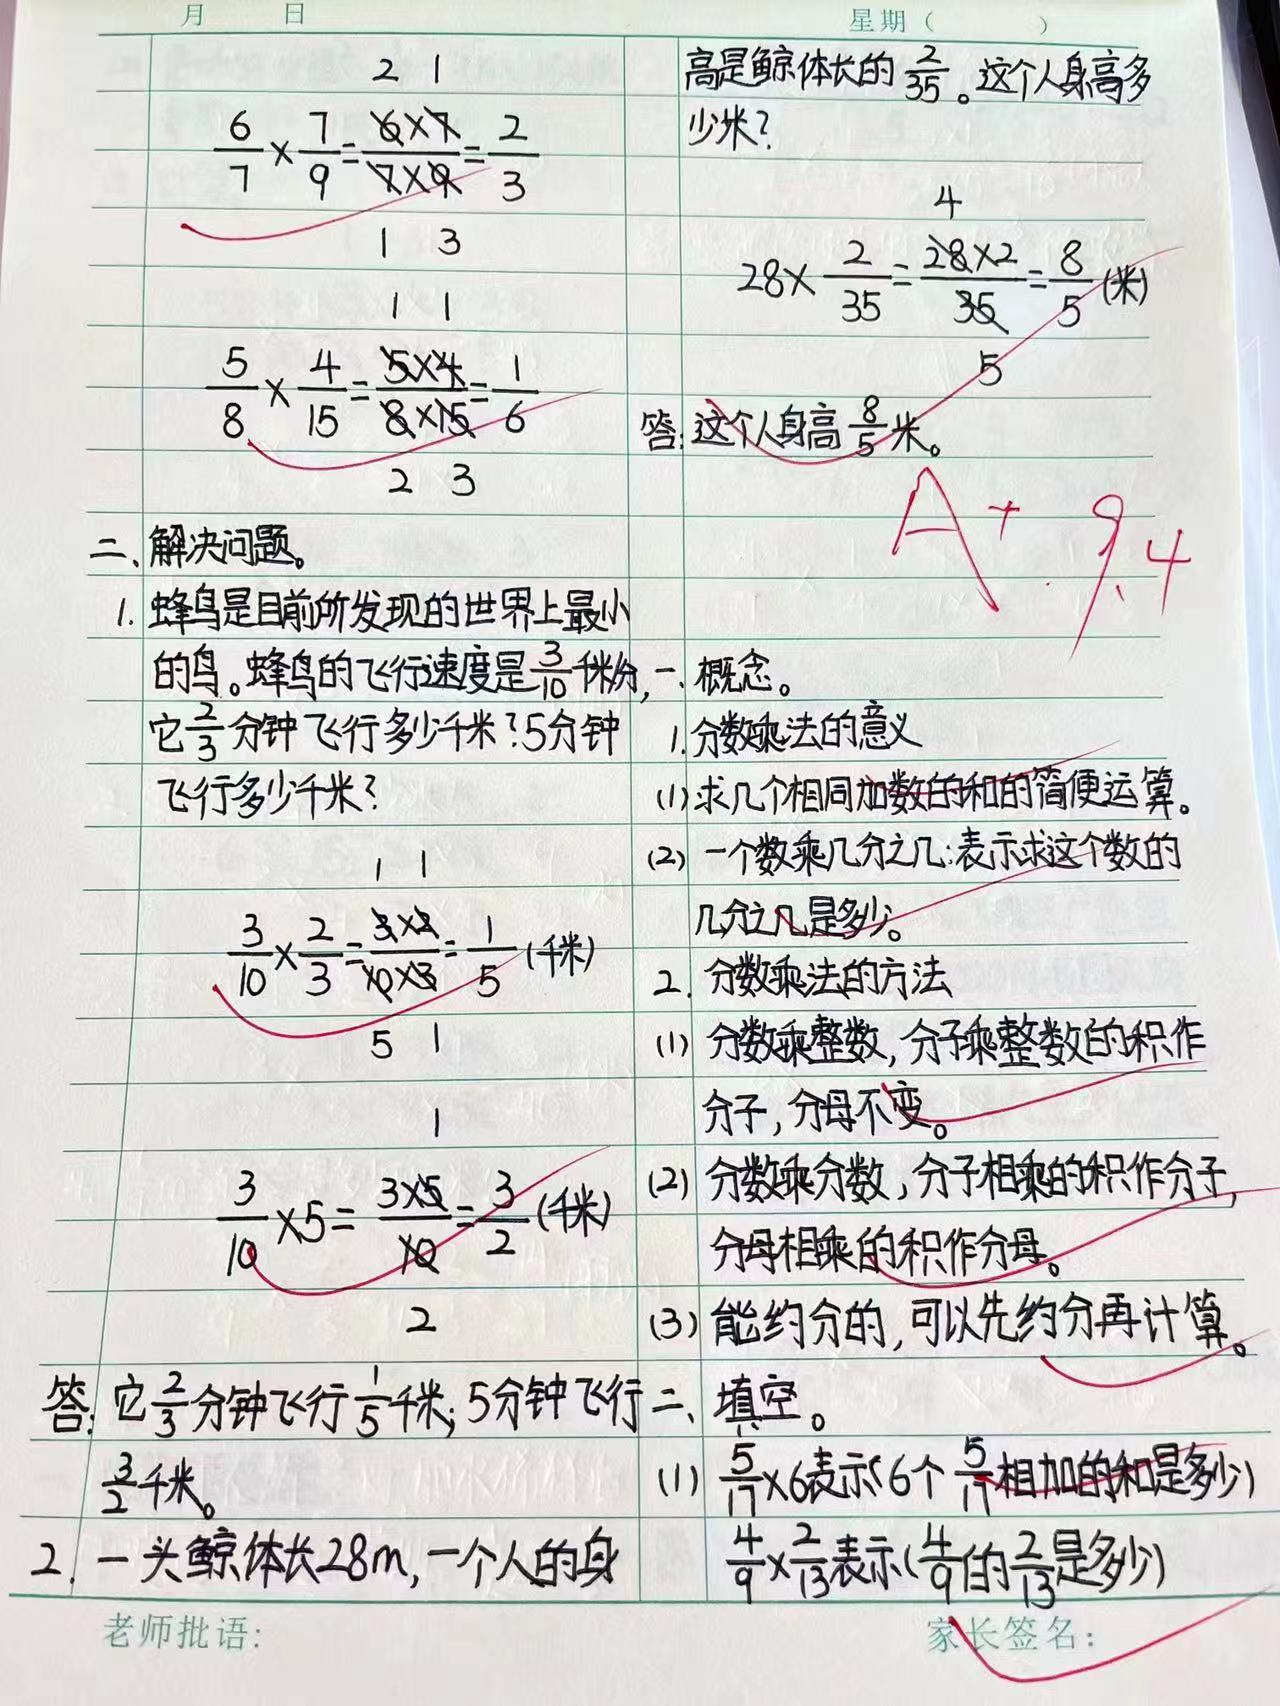 月 日 星期（ ）
2 1
6/7×7/9=6×7/7×9=2/3
1 3
1 1
5/8×4/15=5×4/8×15=1/6
2 3
二、解决问题。
1. 蜂鸟是目前所发现的世界上最小
的鸟。蜂鸟的飞行速度是3/10千米/分,
它2/3分钟飞行多少千米?5分钟
飞行多少千米?
1 1
3/10×2/3=3×2/10×3=1/5(千米)
5 1
1
3/10×5=3×5/10=3/2(千米)
2
答:它2/3分钟飞行1/5千米;5分钟飞行
3/2千米。
2. 一头鲸体长28m,一个人的身
高是鲸体长的2/35。这个人身高多
少米?
4
28×2/35=28×2/35=8/5(米)
5
答:这个人身高8/5米。
A+ 9.4
一、概念。
1.分数乘法的意义
(1)求几个相同加数的和的简便运算。
(2)一个数乘几分之几:表示求这个数的
几分之几是多少。
2. 分数乘法的方法
(1)分数乘整数,分子乘整数的积作
分子,分母不变。
(2)分数乘分数,分子相乘的积作分子,
分母相乘的积作分母。
(3)能约分的,可以先约分再计算。
二、填空。
(1) 5/17×6表示(6个5/17相加的和是多少)
4/9×2/13表示(4/9的2/13是多少)
老师批语: 家长签名: